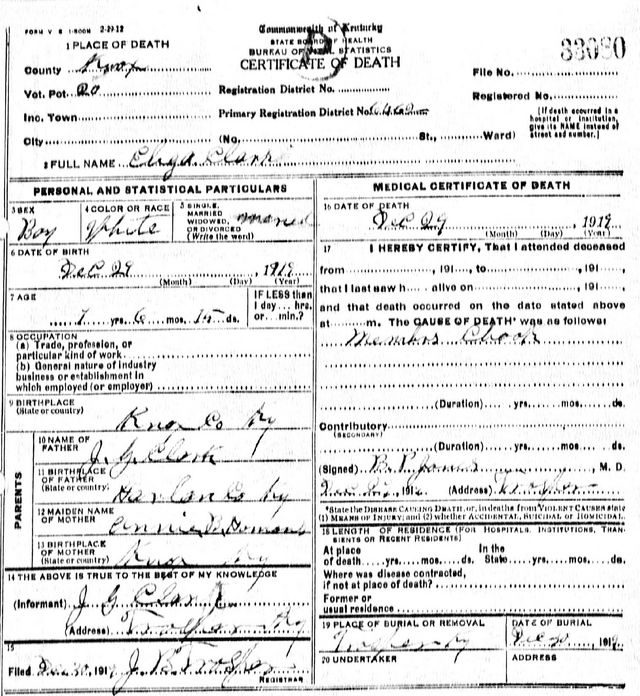 FORM V S 1-500M 2-29-12
Commonwealth of Kentucky
STATE BOARD OF HEALTH
BUREAU OF VITAL STATISTICS
CERTIFICATE OF DEATH
1 PLACE OF DEATH
County Knox
Vot. Pct. 20
Inc. Town
City
File No. 33080
Registration District No.
Registered No.
Primary Registration District No. 6462
[If death occurred in a hospital or institution, give its NAME instead of street and number.]
(No. St., Ward)
2 FULL NAME Clark
PERSONAL AND STATISTICAL PARTICULARS
3 SEX
Boy
4 COLOR OR RACE
White
5 SINGLE,
MARRIED
WIDOWED,
OR DIVORCED
(Write the word)
6 DATE OF BIRTH
Dec 29, 191
(Month) (Day) (Year)
7 AGE
1 yrs. 6 mos. 15 ds.
IF LESS than
1 day ... hrs.
or ... min.?
8 OCCUPATION
(a) Trade, profession, or
particular kind of work
(b) General nature of industry
business or establishment in
which employed (or employer)
9 BIRTHPLACE
(State or country)
Knox Co Ky
PARENTS
10 NAME OF
FATHER
J. G. Clark
11 BIRTHPLACE
OF FATHER
(State or country)
Harlan Co Ky
12 MAIDEN NAME
OF MOTHER
13 BIRTHPLACE
OF MOTHER
(State or country)
Knox Ky
14 THE ABOVE IS TRUE TO THE BEST OF MY KNOWLEDGE
(Informant) J. G. Clark
(Address) Trosper Ky
15
Filed Dec 30, 191 J. B. Trosper
REGISTRAR
MEDICAL CERTIFICATE OF DEATH
16 DATE OF DEATH
Dec 29, 191
(Month) (Day) (Year)
17 I HEREBY CERTIFY, That I attended deceased
from , 191 , to , 191 ,
that I last saw h alive on , 191 ,
and that death occurred on the date stated above
at m. The CAUSE OF DEATH* was as follows:
(Duration) yrs. mos. ds.
Contributory
(SECONDARY)
(Duration) yrs. mos. ds.
(Signed) M. D.
, 191 (Address) Trosper
*State the DISEASE CAUSING DEATH, or, in deaths from VIOLENT CAUSES state
(1) MEANS OF INJURY; and (2) whether ACCIDENTAL, SUICIDAL or HOMICIDAL.
18 LENGTH OF RESIDENCE (FOR HOSPITALS, INSTITUTIONS, TRANSIENTS OR RECENT RESIDENTS)
At place
of death yrs. mos. ds.
In the
State yrs. mos. ds.
Where was disease contracted,
if not at place of death?
Former or
usual residence
19 PLACE OF BURIAL OR REMOVAL
Trosper Ky
DATE OF BURIAL
191
20 UNDERTAKER
ADDRESS